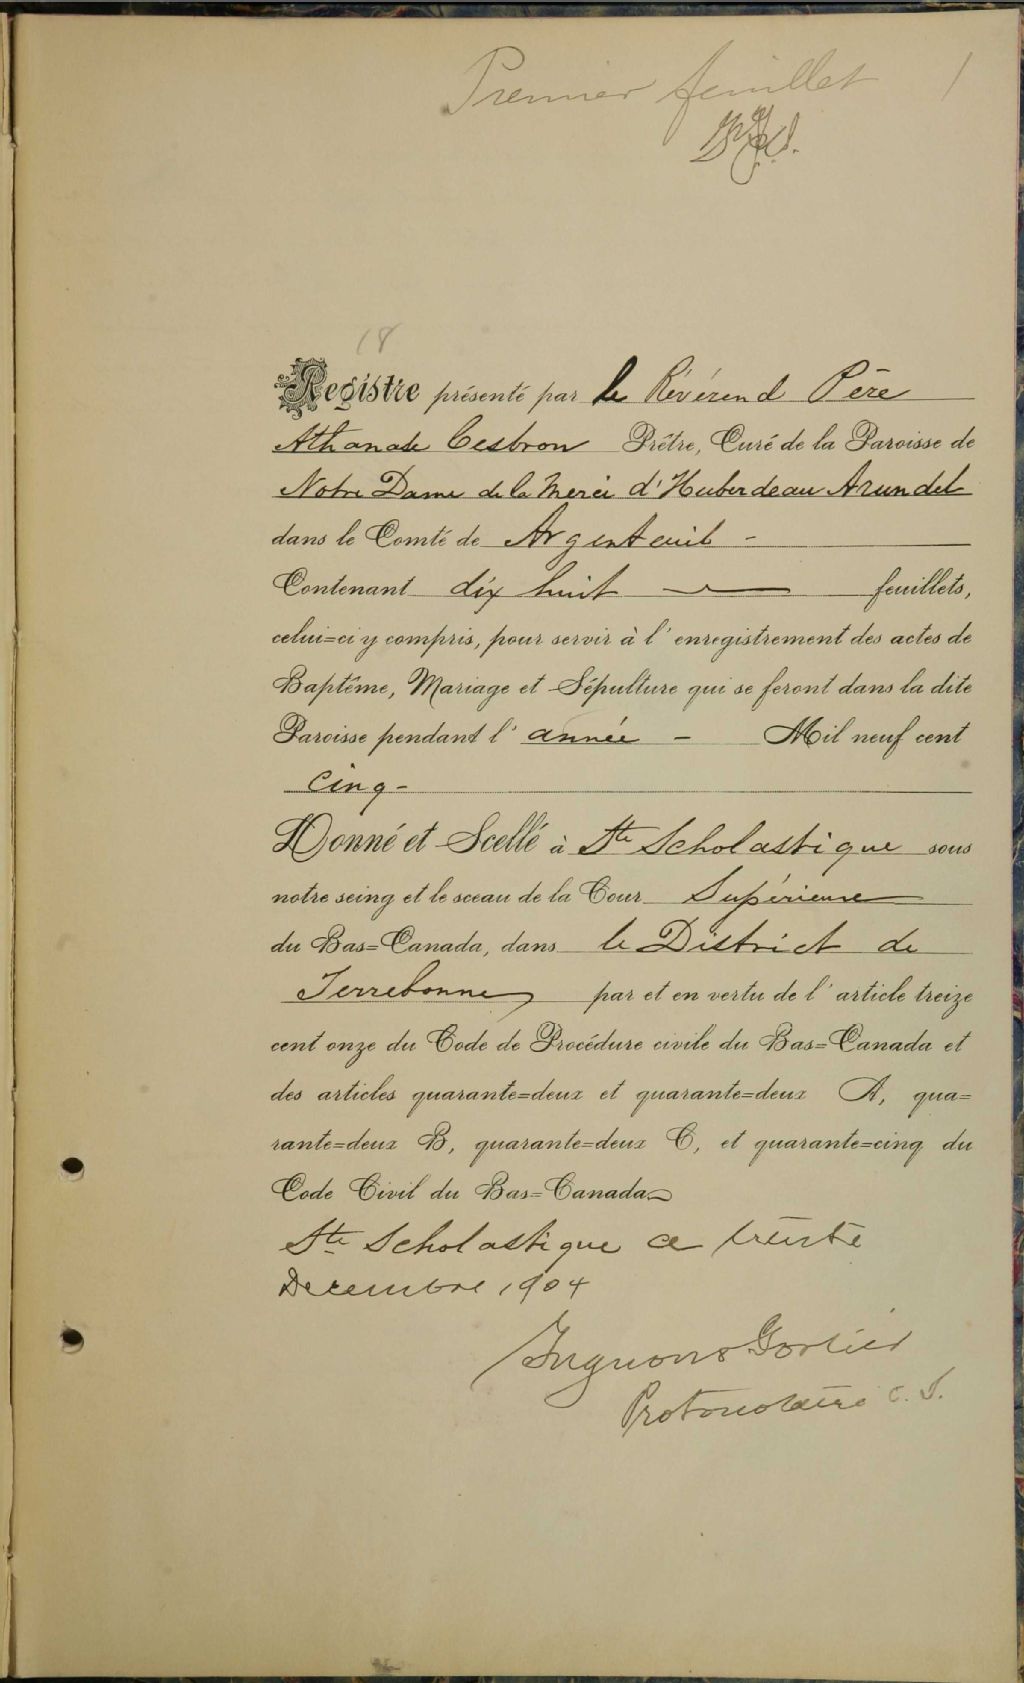 Premier feuillet 1
18
Registre présenté par le Révérend Père
Athanase Cesbron Prêtre, Curé de la Paroisse de
Notre Dame de la Merci d'Huberdeau Arundel
dans le Comté de Argenteuil -
Contenant dix huit feuillets,
celui=ci y compris, pour servir à l'enregistrement des actes de
Baptême, Mariage et Sépulture qui se feront dans la dite
Paroisse pendant l'année - Mil neuf cent
cinq -
Donné et Scellé à Ste Scholastique sous
notre seing et le sceau de la Cour Supérieure
du Bas=Canada, dans le District de
Terrebonne par et en vertu de l'article treize
cent onze du Code de Procédure civile du Bas=Canada et
des articles quarante=deux et quarante=deux A, qua=
rante=deux B, quarante=deux C, et quarante=cinq du
Code Civil du Bas=Canada
Ste Scholastique ce trente
Decembre 1904
Protonotaire C. S.